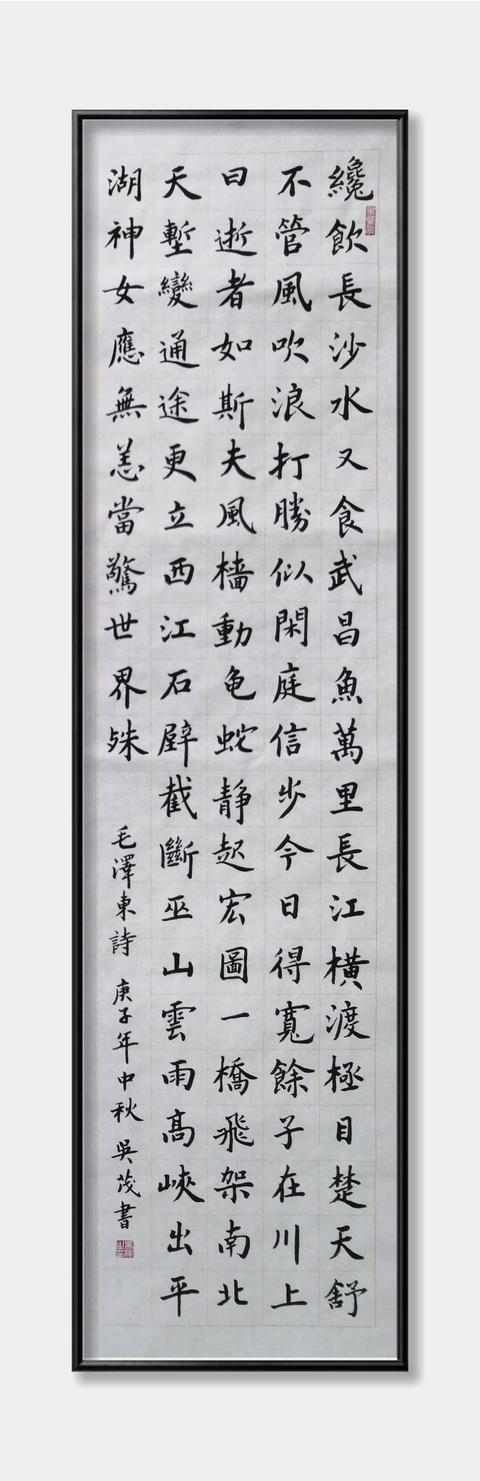 纔飲長沙水又食武昌魚萬里長江橫渡極目楚天舒
不管風吹浪打勝似閑庭信步今日得寬餘子在川上
曰逝者如斯夫風檣動龟蛇静起宏圖一橋飛架南北
天塹變通途更立西江石壁截斷巫山雲雨高峽出平
湖神女應無恙當驚世界殊
毛澤東詩 庚子年中秋 吳茂書